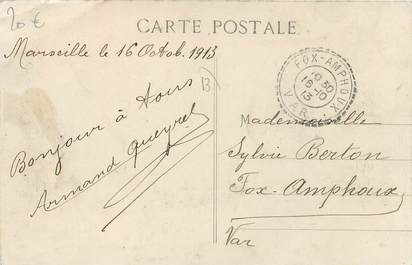 20€
CARTE POSTALE
Marseille le 16 Octob. 1913
13
Bonjour à tous
Armand Queyrel
FOX-AMPHOUX
10 30
16-10
13
VAR
Mademoiselle
Sylvie Berton
Fox-Amphoux
Var